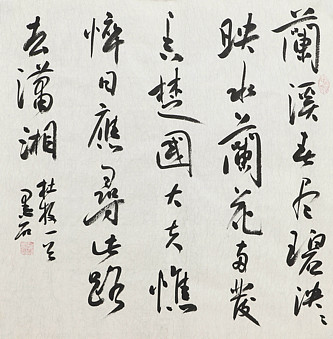 蘭溪春尽碧泱〻
映水蘭花雨發
香楚國大夫憔
悴日應尋此路
去瀟湘
杜牧一首